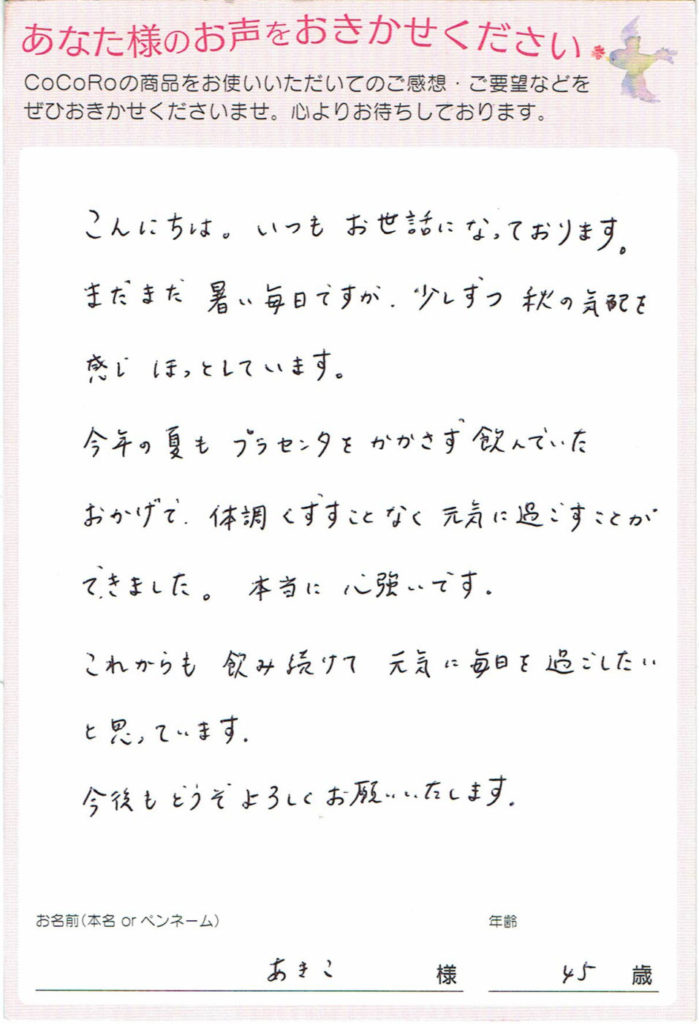 あなた様のお声をおきかせください
CoCoRoの商品をお使いいただいてのご感想・ご要望などを
ぜひおきかせくださいませ。心よりお待ちしております。
こんにちは。いつも お世話になっております。
まだまだ 暑い毎日ですが、少しずつ 秋の気配を
感じ ほっとしています。
今年の夏も プラセンタを かかさず 飲んでいた
おかげで、体調くずすことなく 元気に過ごすことが
できました。 本当に 心強いです。
これからも 飲み続けて 元気に毎日を 過ごしたい
と思っています。
今後もどうぞよろしくお願いいたします。
お名前(本名 or ペンネーム) 年齢
あきこ 様 45 歳